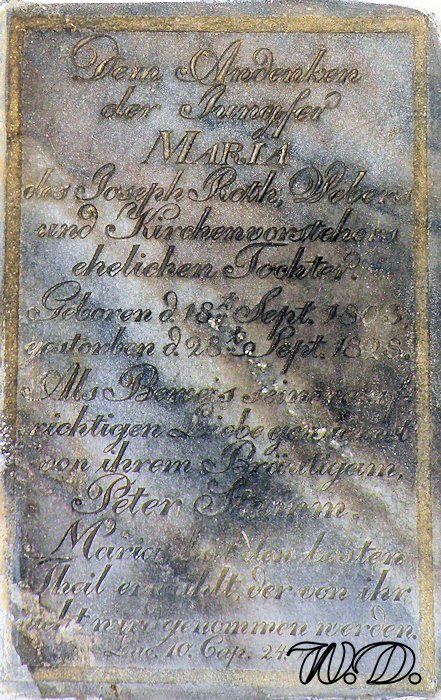 Dem Andenken
der Jungfer
MARIA
des Joseph Roth, Webers
und Kirchenvorstehers
ehelichen Tochter.
Geboren d. 18t. Sept. 1803,
gestorben d. 28t. Sept. 1828.
Als Beweis seiner auf-
richtigen Liebe gewidmet
von ihrem Bräutigam,
Peter Stamm.
Maria hat den besten
Theil erwählt, der von ihr
nicht wird genommen werden.
Luc. 10. Cap. 24.
W.D.